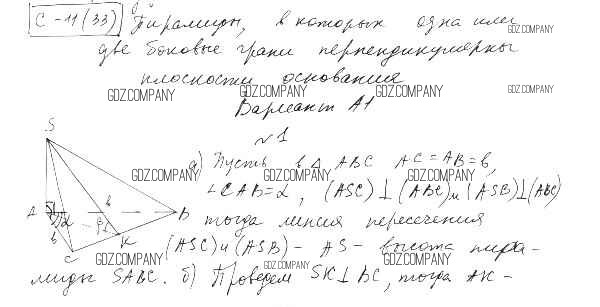 С-11(33) Пирамиды, в которых одна или
две боковые грани перпендикулярны
GDZ.COMPANY
плоскости основания
GDZ.COMPANY GDZ.COMPANY GDZ.COMPANY GDZ.COMPANY
Вариант А1
№1
S
а) Пусть в Δ ABC AC = AB = b,
GDZ.COMPANY GDZ.COMPANY GDZ.COMPANY
∠CAB = α, (ASC) ⊥ (ABC) и (ASB) ⊥ (ABC)
A α b β B
тогда линия пересечения
b C K
(ASC) и (ASB) - AS - высота пира-
GDZ.COMPANY GDZ.COMPANY GDZ.COMPANY
миды SABC. б) Проведем SK ⊥ BC, тогда AK -